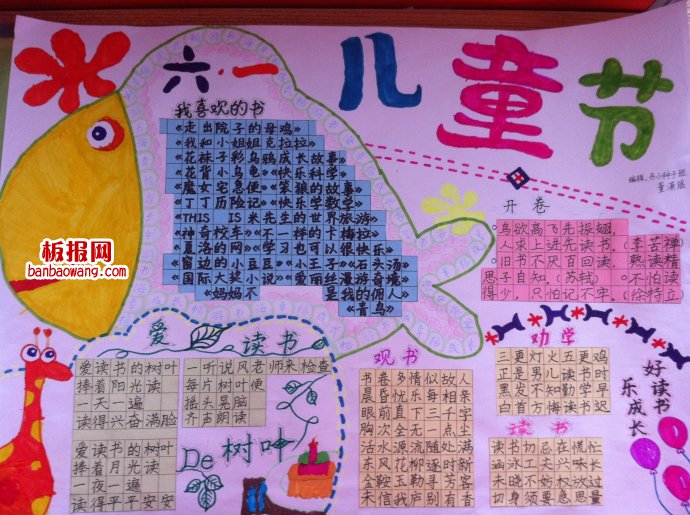 六·一
儿童节
编辑:丹小种子班
董潇瑶
我喜欢的书
《走出院子的母鸡》
《我和小姐姐克拉拉》
《花袜子彩乌鸦成长故事》
《花背小乌龟》《快乐科学》
《魔女宅急便》《笨狼的故事》
《丁丁历险记》《快乐学数学》
《THIS IS 米先生的世界旅游》
《神奇校车》《不一样的卡梅拉》
《夏洛的网》《学习也可以很快乐》
《窗边的小豆豆》《小王子》《石头汤》
《国际大奖小说》《爱丽丝漫游奇境》
《妈妈不是我的佣人》
《青鸟》
开卷
鸟欲高飞先振翅,
人求上进先读书。(李苦禅)
旧书不厌百回读,熟读精
思子自知。(苏轼) 不怕读
得少,只怕记不牢。(徐特立)
板报网
banbaowang.com
爱读书
De树叶
爱读书的树叶
捧着阳光读
一天一遍
读得兴奋满脸
爱读书的树叶
捧着月光读
一夜一遍
读得平平安安
一听说风老师来检查
每片树叶便
摇头晃脑
齐声朗读
观书
书卷多情似故人
晨昏忧乐每相亲
眼前直下三千字
胸次全无一点尘
活水源流随处满
东风花柳逐时新
金鞍玉勒寻芳客
未信我庐别有春
劝学
三更灯火五更鸡
正是男儿读书时
黑发不知勤学早
白首方悔读书迟
读书
读书切忌在慌忙
涵泳工夫兴味长
未晓不妨权放过
切身须要急思量
好读书
乐成长